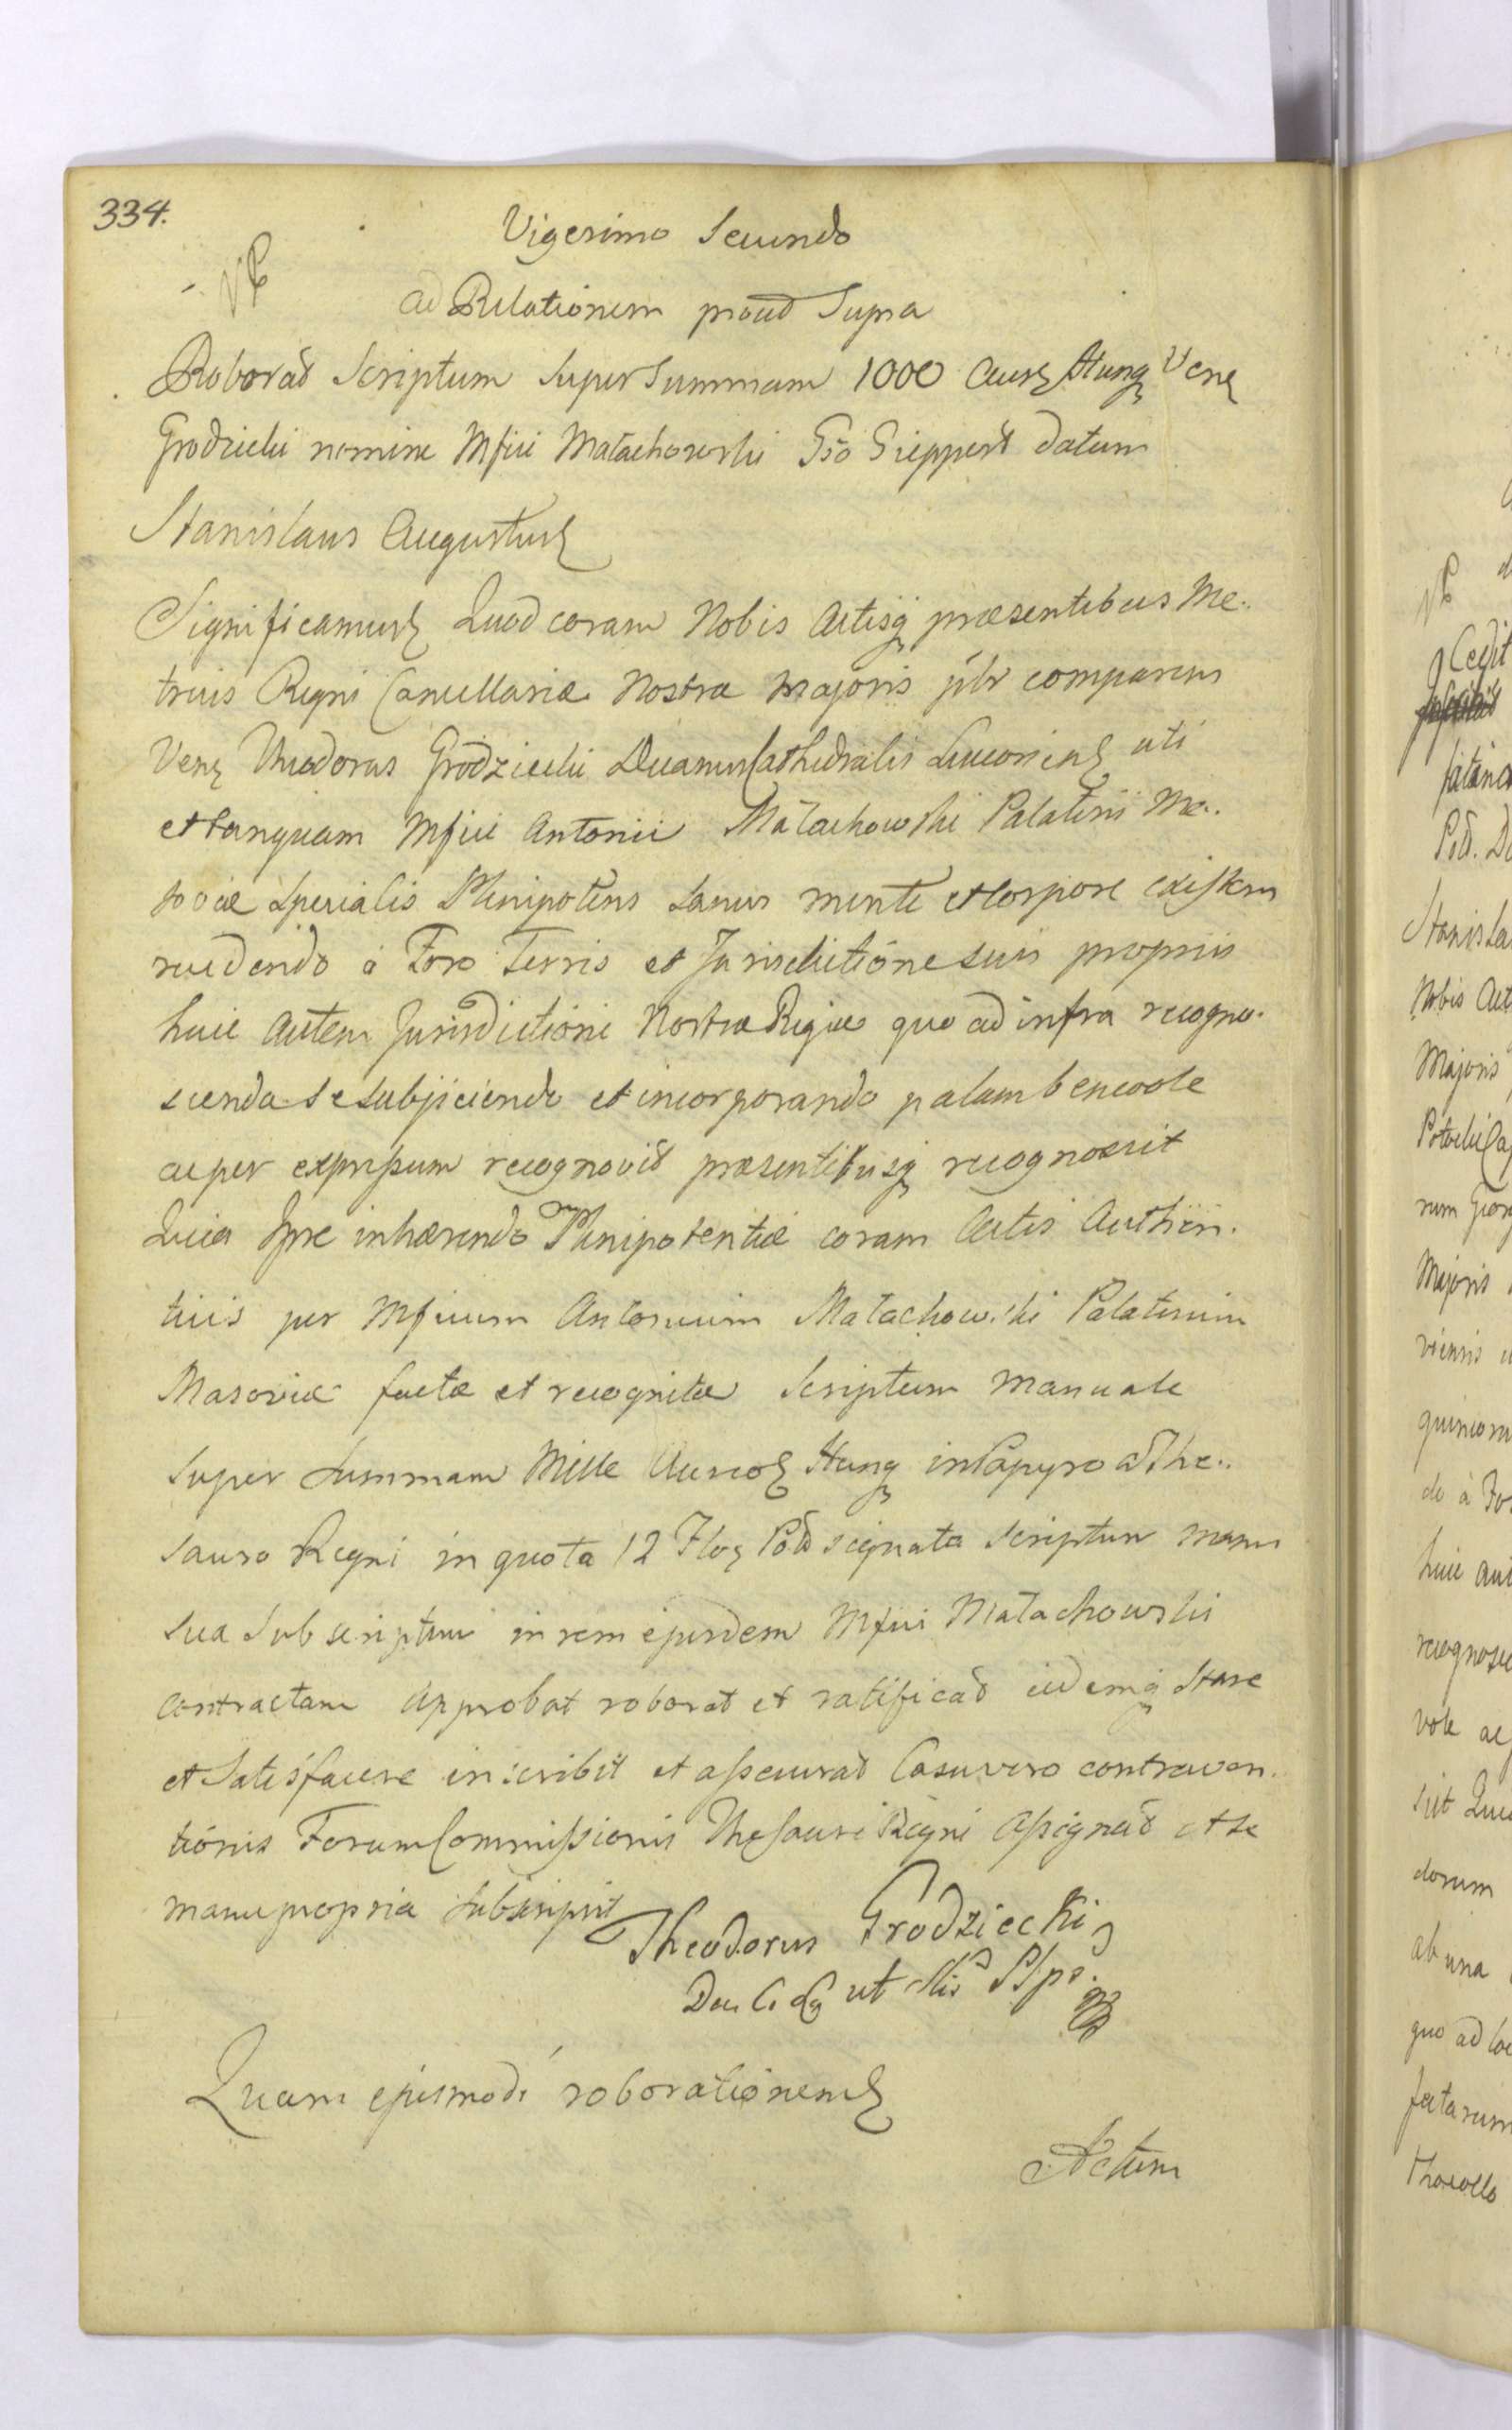 334.
Vigesimo Secundo
ad Relationem prout Supra
Roborat Scriptum Super Summam 1000 Aur Hung Ven
Grodzicki nomine Mfici Małachowski Gso Gieppert datum
Stanislaus Augustus
Significamus Quod coram Nobis Actisq præsentibus Me-
tricis Regni Cancellariæ Nostræ Majoris pltr comparens
Ven Theodorus Grodzicki Decanus Cathedralis Luceorien uti
et tanquam Mfici Antonii Małachowski Palatini Ma-
soviæ Specialis Plenipotens Sanus mente et Corpore existens
recedendo à Foro Terris et Jurisdictione suis propriis
huic autem Jurisdictioni Nostræ Regiæ quo ad infra recogno-
scenda se subjiciendo et incorporando palam benevole
ac per expressum recognovit præsentibusq recognoscit
Quia Ipse inhærendo Plenipotentiæ coram Actis Authen-
ticis per Mficum Antonium Małachowski Palatinum
Masoviæ factæ et recognitæ Scriptum manuale
Super Summam Mille Aureo Hung in Papyro a The-
sauro Regni in quota 12 Flo Pol signata Scriptum manu
sua Subscriptum in rem ejusdem Mfici Małachowski
Contractam Approbat roborat et ratificat eidemq Stare
et Satisfacere inscribit et assecurat Casu vero contraven-
tionis Forum Commissionis Thesauri Regni Assignat et se
manu propria Subscripsit
Theodorus Grodziecki
Dec. C. Lu ut Slis Plps.
Quam ejusmodi roborationem
Actum